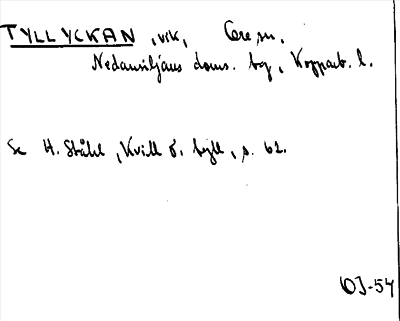 TYLLYCKAN, vik, Ore sn.
Nedansiljans doms. bg, Kopparb. l.
Se H. Ståhl, Kvill o. tyll, s. 62.
OJ-54